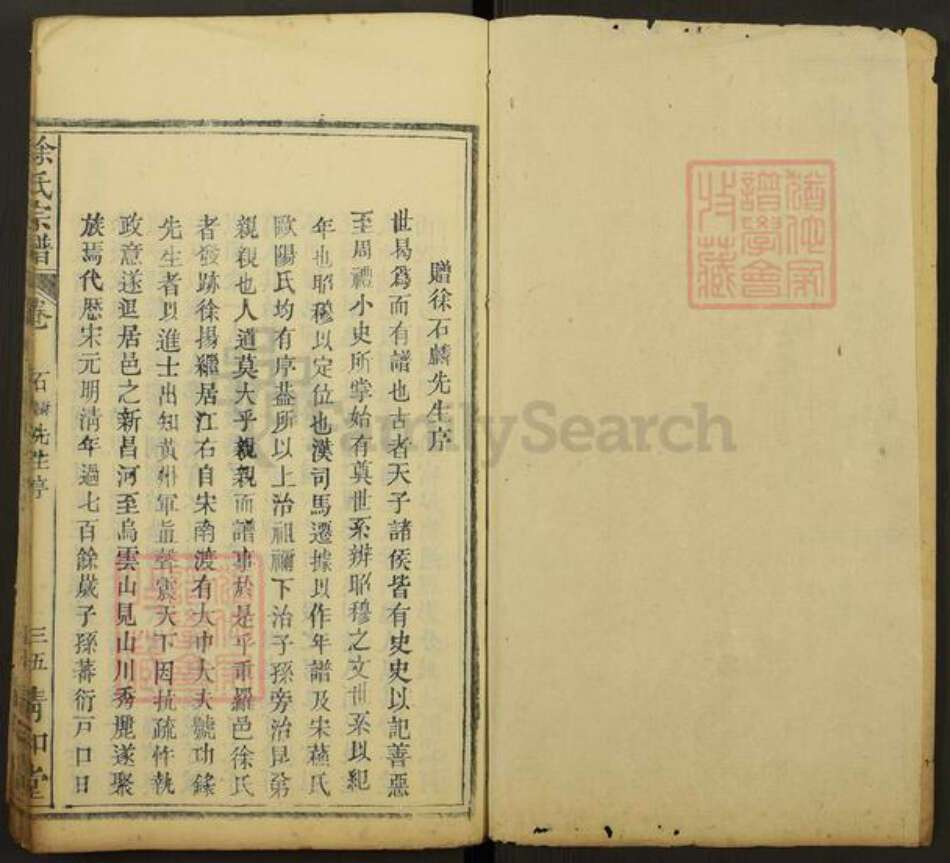 贈徐石麟先生序
世曷爲而有譜也古者天子諸侯皆有史史以記善惡
至周禮小史所掌始有奠世系辨昭穆之文世系以紀
年也昭穆以定位也漢司馬遷據以作年譜及宋蘓氏
歐陽氏均有序葢所以上治祖禰下治子孫旁治昆弟
親親也人道莫大乎親親而譜事於是乎重羅邑徐氏
者發跡徐揚繼居江右自宋南渡有大中大夫號功錄
先生者以進士出知黃州軍直聲震天下因抗疏忤執
政意遂退居邑之新昌河至烏雲山見山川秀麗遂聚
族焉代歷宋元明淸年過七百餘歲子孫蕃衍戸口日
徐氏宗譜
卷
石麟先生序
三五
淸和堂
譜學會
收藏
FamilySearch